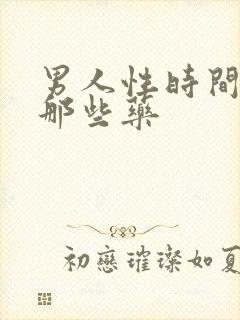 男人性時間
那些藥
初戀璀璨如夏